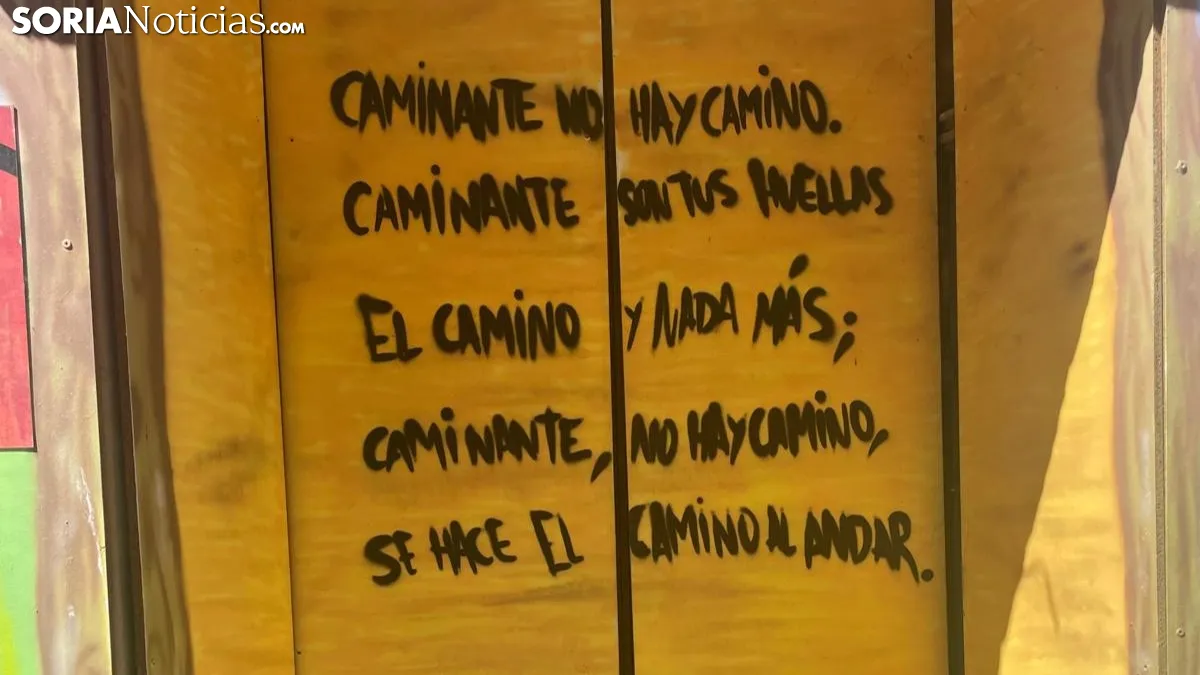 SORIANoticias.com
CAMINANTE NO HAY CAMINO.
CAMINANTE SON TUS HUELLAS
EL CAMINO Y NADA MÁS;
CAMINANTE, NO HAY CAMINO,
SE HACE EL CAMINO AL ANDAR.